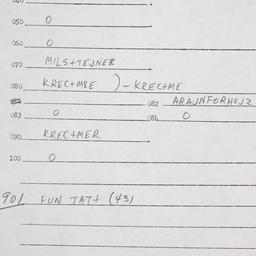 050 0
060 0
070 MILS+TEJNER
080 KREC+MBE ) - KREC+ME
082 ARAJNFORHOJZ
083 0 084 0
090 KREC+MER
100 0
901 FUN TAT+ (43)